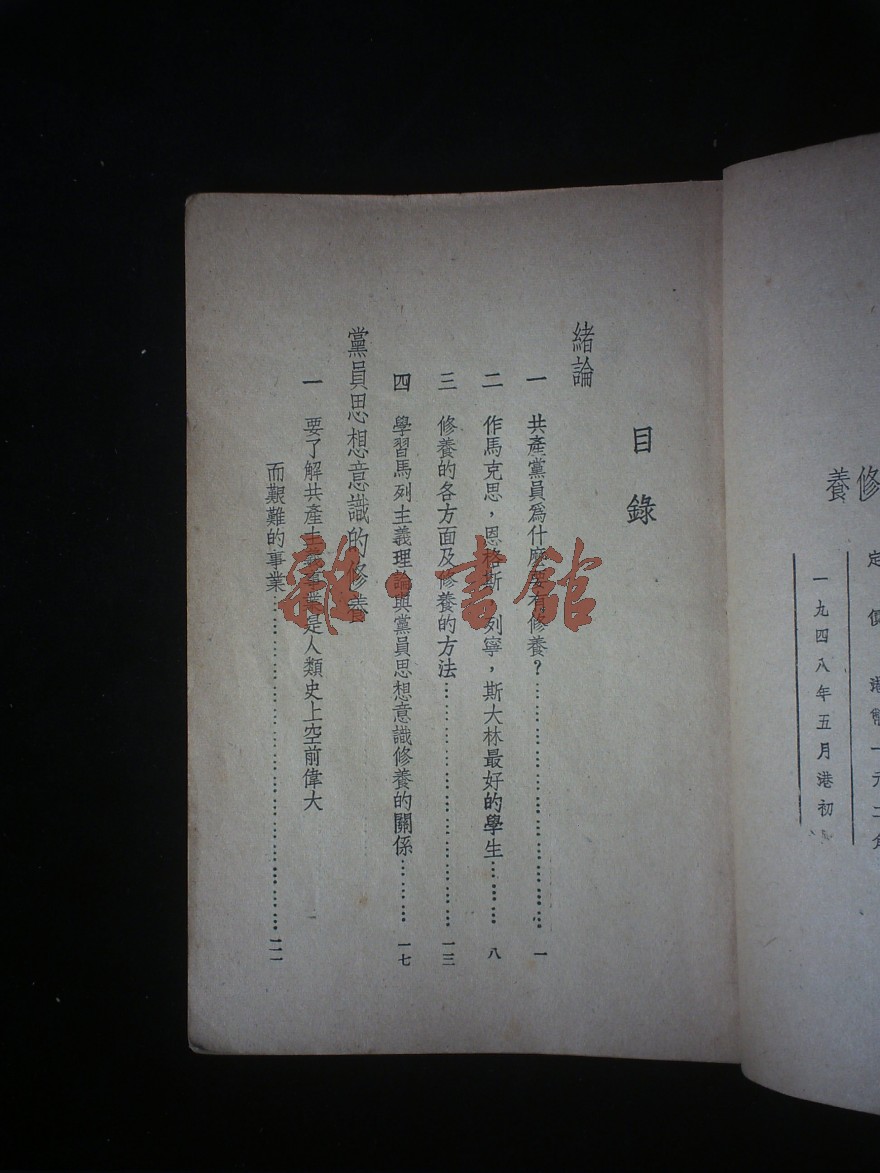 修養
定價 港幣一元二角
一九四八年五月港初
目錄
緒論
一 共產黨員爲什麼要有修養？……一
二 作馬克思，恩格斯，列寧，斯大林最好的學生……八
三 修養的各方面及修養的方法……一三
四 學習馬列主義理論與黨員思想意識修養的關係……一七
黨員思想意識的修養
一 要了解共產主義事業是人類史上空前偉大
而艱難的事業……二一
雜·書館